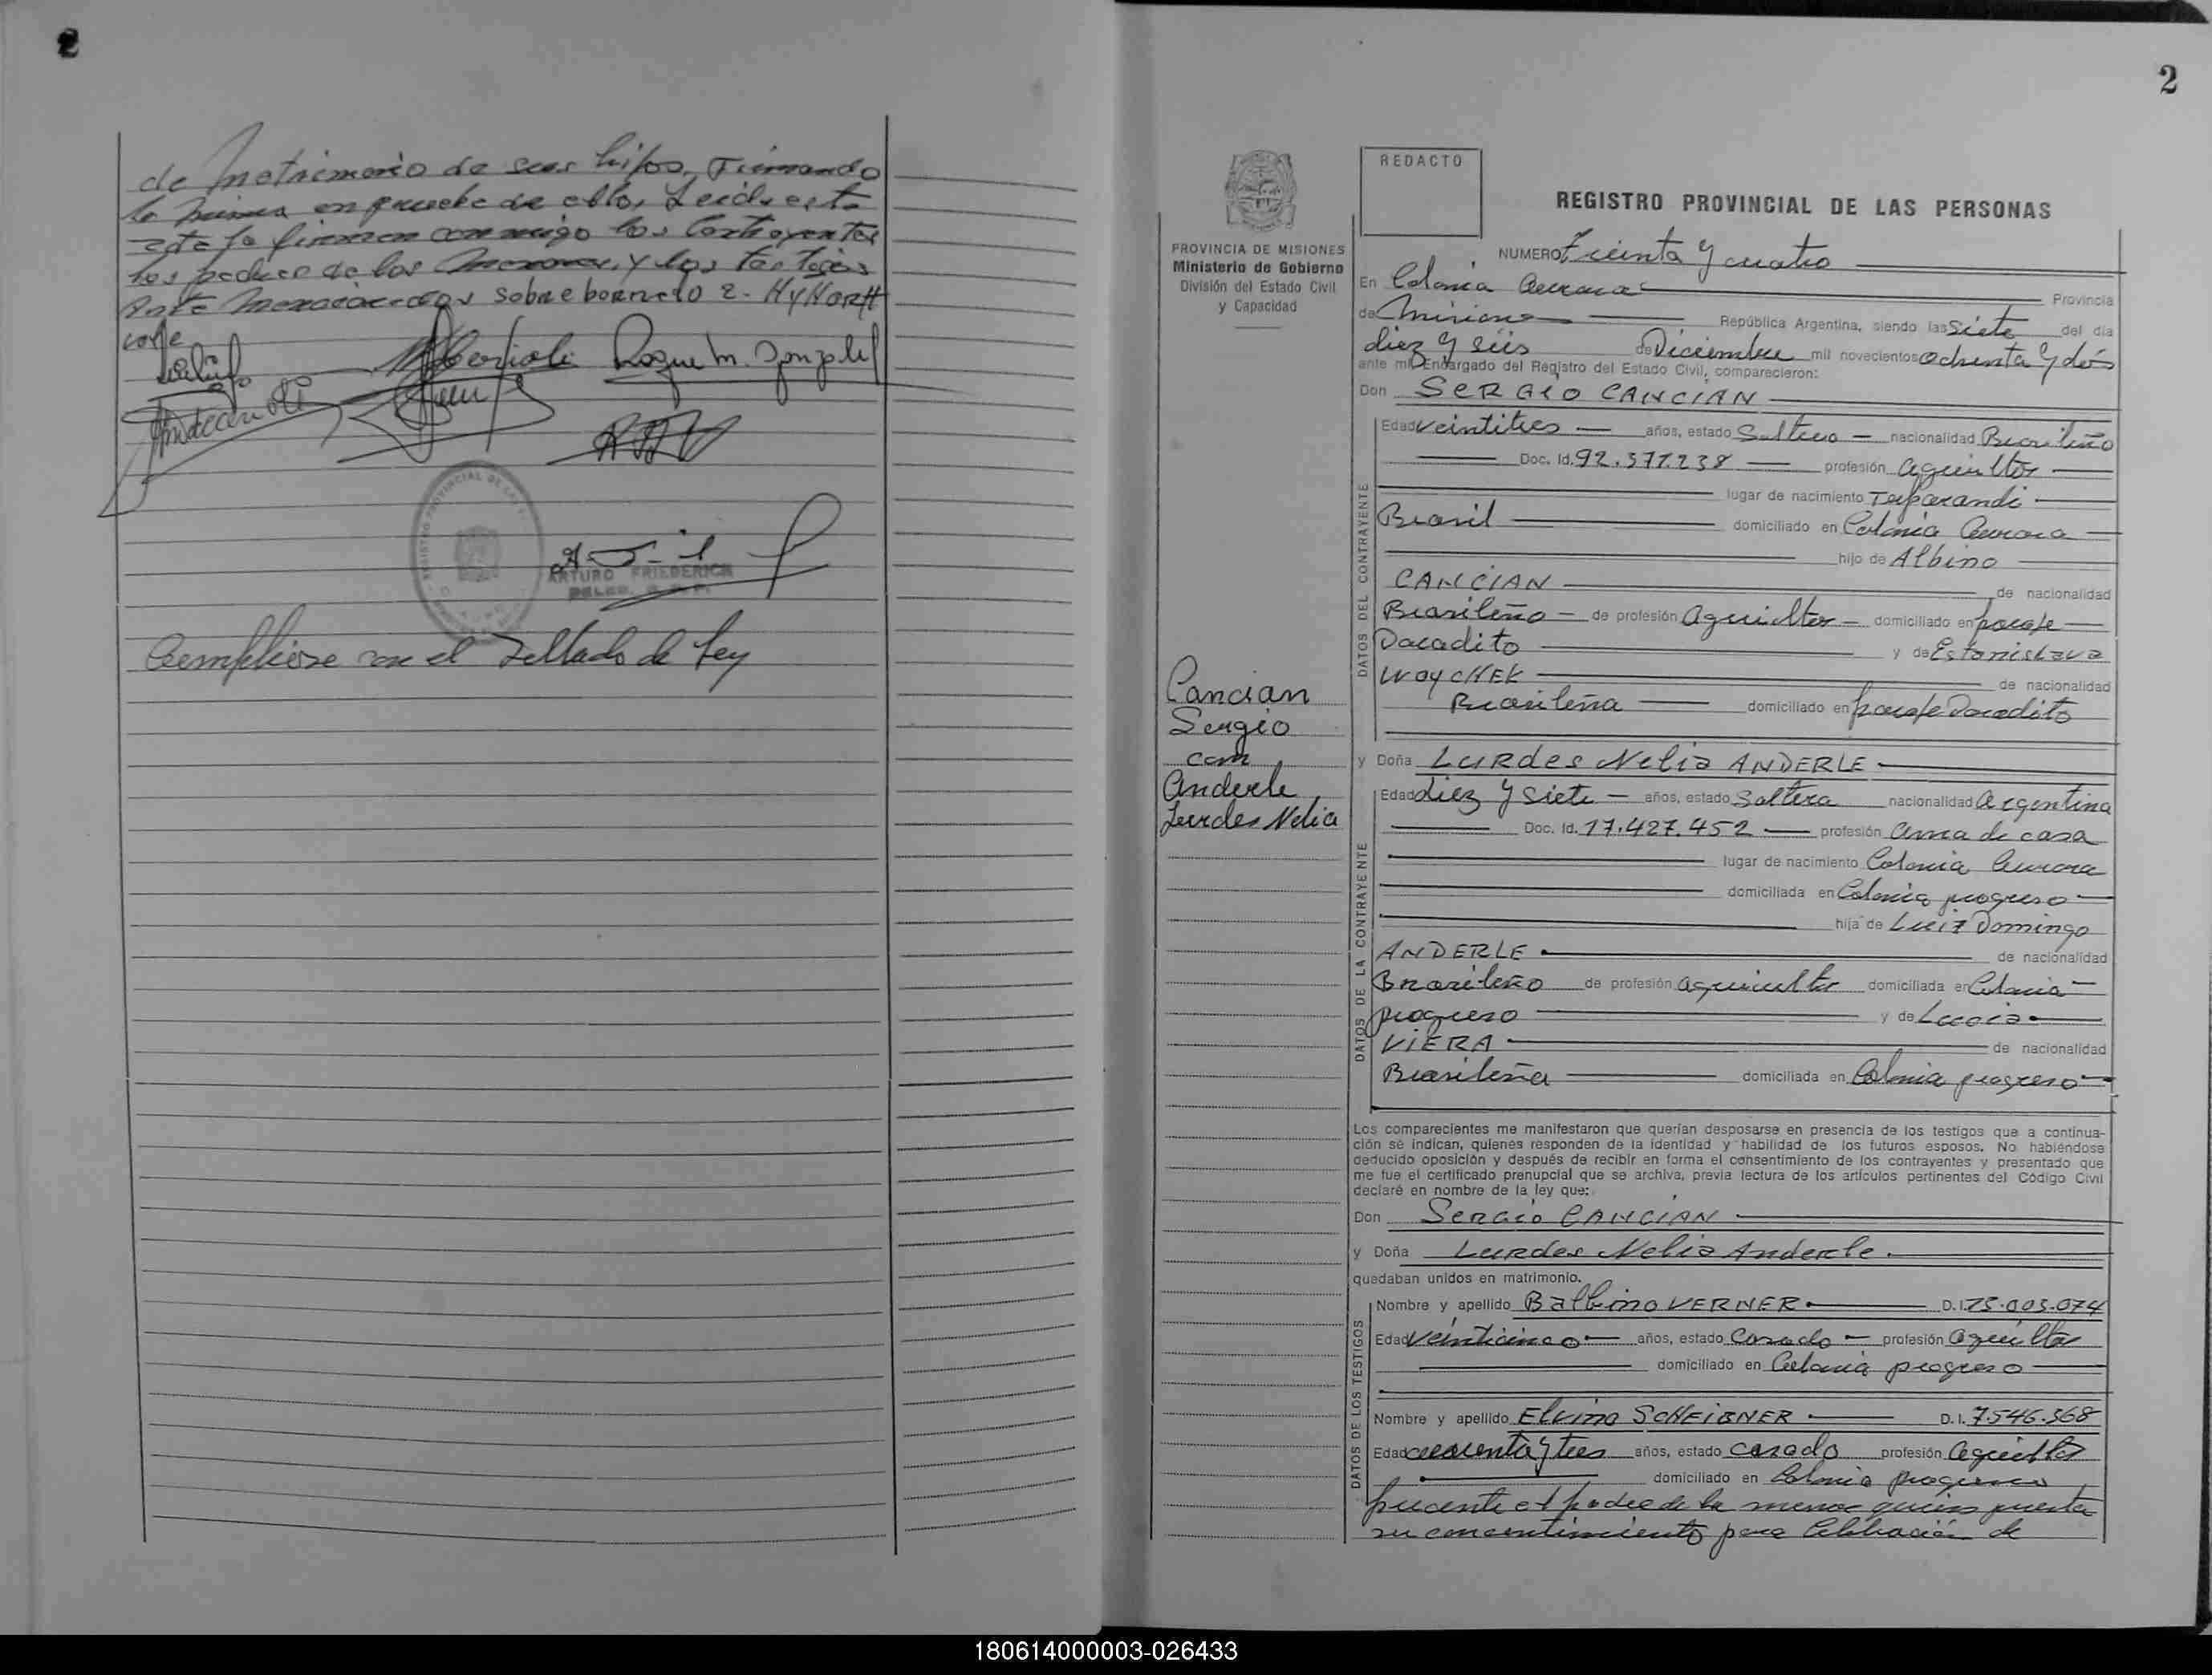 de Matrimonio de sus hijos, Firmando
la misma en prueba de ello, Leida esta
acta la firman conmigo los Contrayentes
los padres de los menores, y los testigos
Ante mencionados sobre borrado 2- HyNorH
vale
Roque M. Gonzalez
ARTURO FRIEDERICH
Cumpliose con el Sellado de ley
2
REDACTO
REGISTRO PROVINCIAL DE LAS PERSONAS
PROVINCIA DE MISIONES
Ministerio de Gobierno
División del Estado Civil
y Capacidad
NUMERO Treinta y cuatro
En Colonia Aurora Provincia
de Misiones República Argentina, siendo las Siete del día
diez y seis de Diciembre mil novecientos ochenta y dós
ante mí Encargado del Registro del Estado Civil, comparecieron:
Don SERGIO CANCIAN
Edad veintitres años, estado Soltero nacionalidad Brasileño
Doc. Id. 92.377.238 profesión agricultor
lugar de nacimiento
Brasil domiciliado en Colonia Aurora
hijo de Albino
CANCIAN de nacionalidad
Brasileño de profesión Agricultor domiciliado en paraje
Doradito y de Estanislava
WOYCHEK de nacionalidad
Brasileña domiciliado en paraje Doradito
Cancian
Sergio
con
Anderle
Lurdes Nelia
y Doña LURDES Nelia ANDERLE
Edad diez y siete años, estado Soltera nacionalidad Argentina
Doc. Id. 17.427.452 profesión Ama de casa
lugar de nacimiento Colonia Aurora
domiciliada en Colonia progreso
hija de Luiz Domingo
ANDERLE de nacionalidad
Brasileño de profesión agricultor domiciliada en Colonia
progreso y de Lucia
VIERA de nacionalidad
Brasileña domiciliada en Colonia progreso
DATOS DEL CONTRAYENTE
DATOS DE LA CONTRAYENTE
Los comparecientes me manifestaron que querían desposarse en presencia de los testigos que a continua-
ción se indican, quienes responden de la identidad y habilidad de los futuros esposos. No habiéndose
deducido oposición y después de recibir en forma el consentimiento de los contrayentes y presentado que
me fue el certificado prenupcial que se archiva, previa lectura de los artículos pertinentes del Código Civil
declaré en nombre de la ley que:
Don Sergio CANCIAN
y Doña Lurdes Nelia Anderle.
quedaban unidos en matrimonio.
DATOS DE LOS TESTIGOS
Nombre y apellido Balbino VERNER D.I.
Edad veinticinco años, estado Casado profesión Agricultor
domiciliado en Colonia progreso
Nombre y apellido Elvino SCHEIBNER D.I. 7.546.368
Edad cuarenta y tres años, estado casado profesión Agricultor
domiciliado en Colonia progreso
presente el padre de la menor quien presta
su consentimiento para Celebración de
180614000003-026433